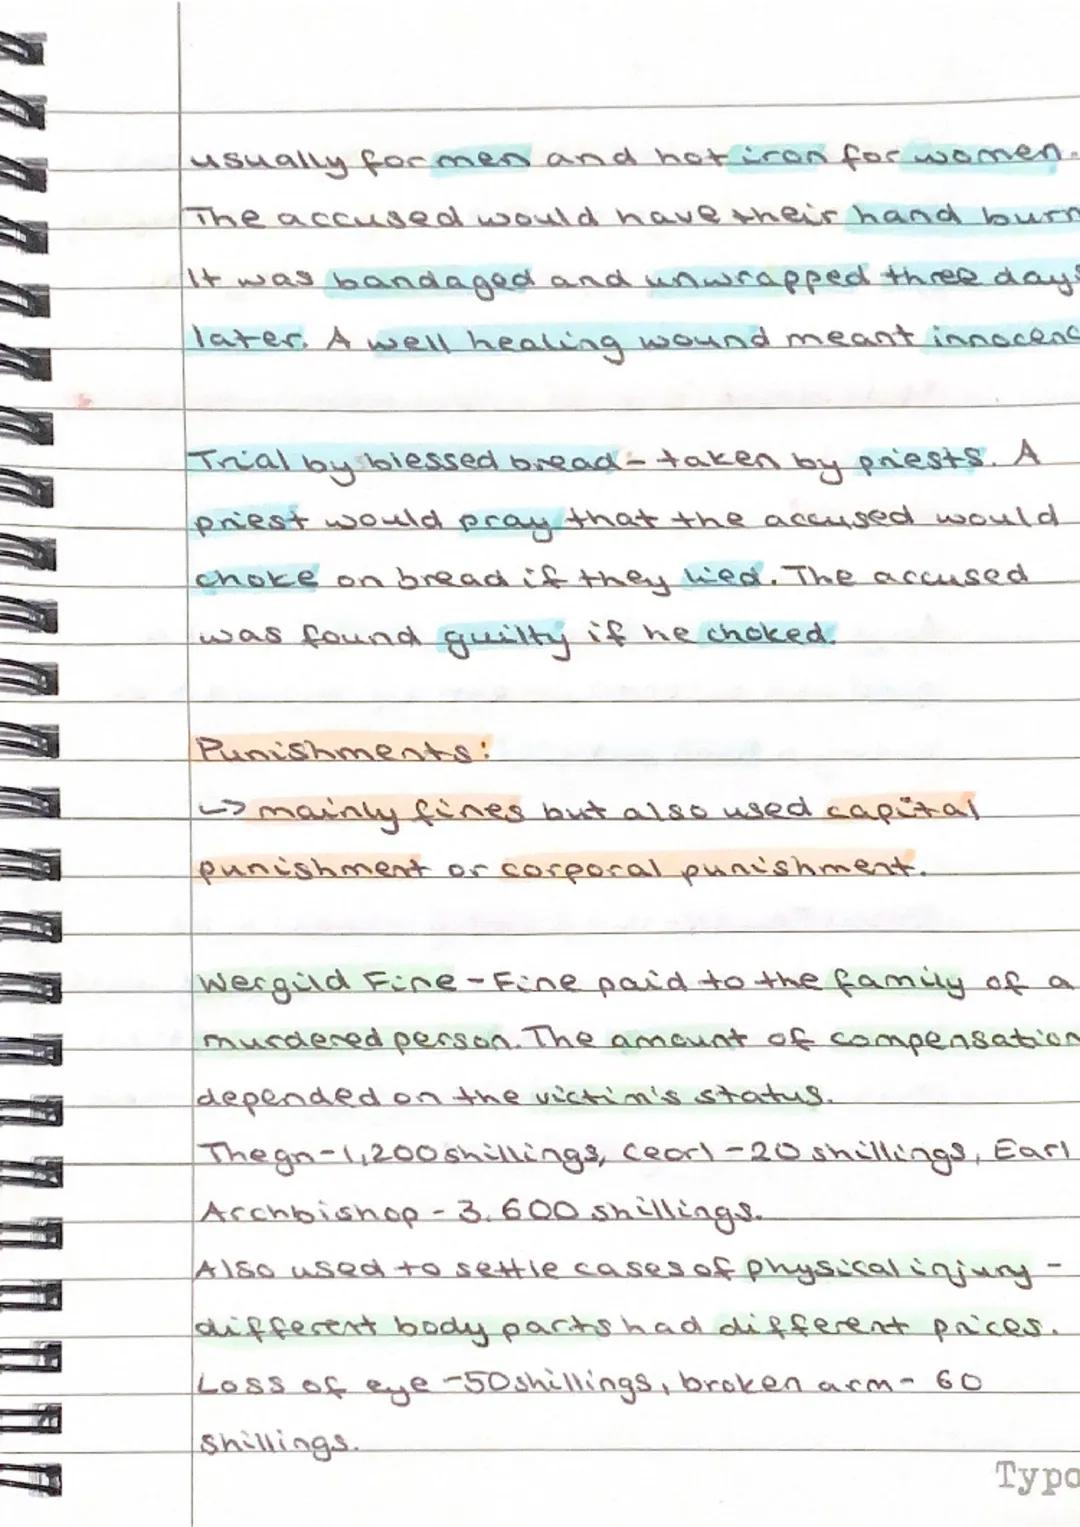 usually for men and hot iron for women.
The accused would have their hand burn
It was bandaged and unwrapped three days
later. A well healing wound meant innocenc
Trial by blessed bread - taken by priests. A
priest would pray that the accused would
choke on bread if they lied. The accused
was found guilty if he choked.
Punishments:
↳ mainly fines but also used capital
punishment or corporal punishment.
Wergild Fine - Fine paid to the family of a
murdered person. The amount of compensation
depended on the victim's status.
Thegn - 1,200 shillings, Ceorl - 20 shillings, Earl
Archbishop - 3.600 shillings.
Also used to settle cases of physical injury -
different body parts had different prices.
Loss of eye - 50 shillings, broken arm - 60
shillings.
Typo